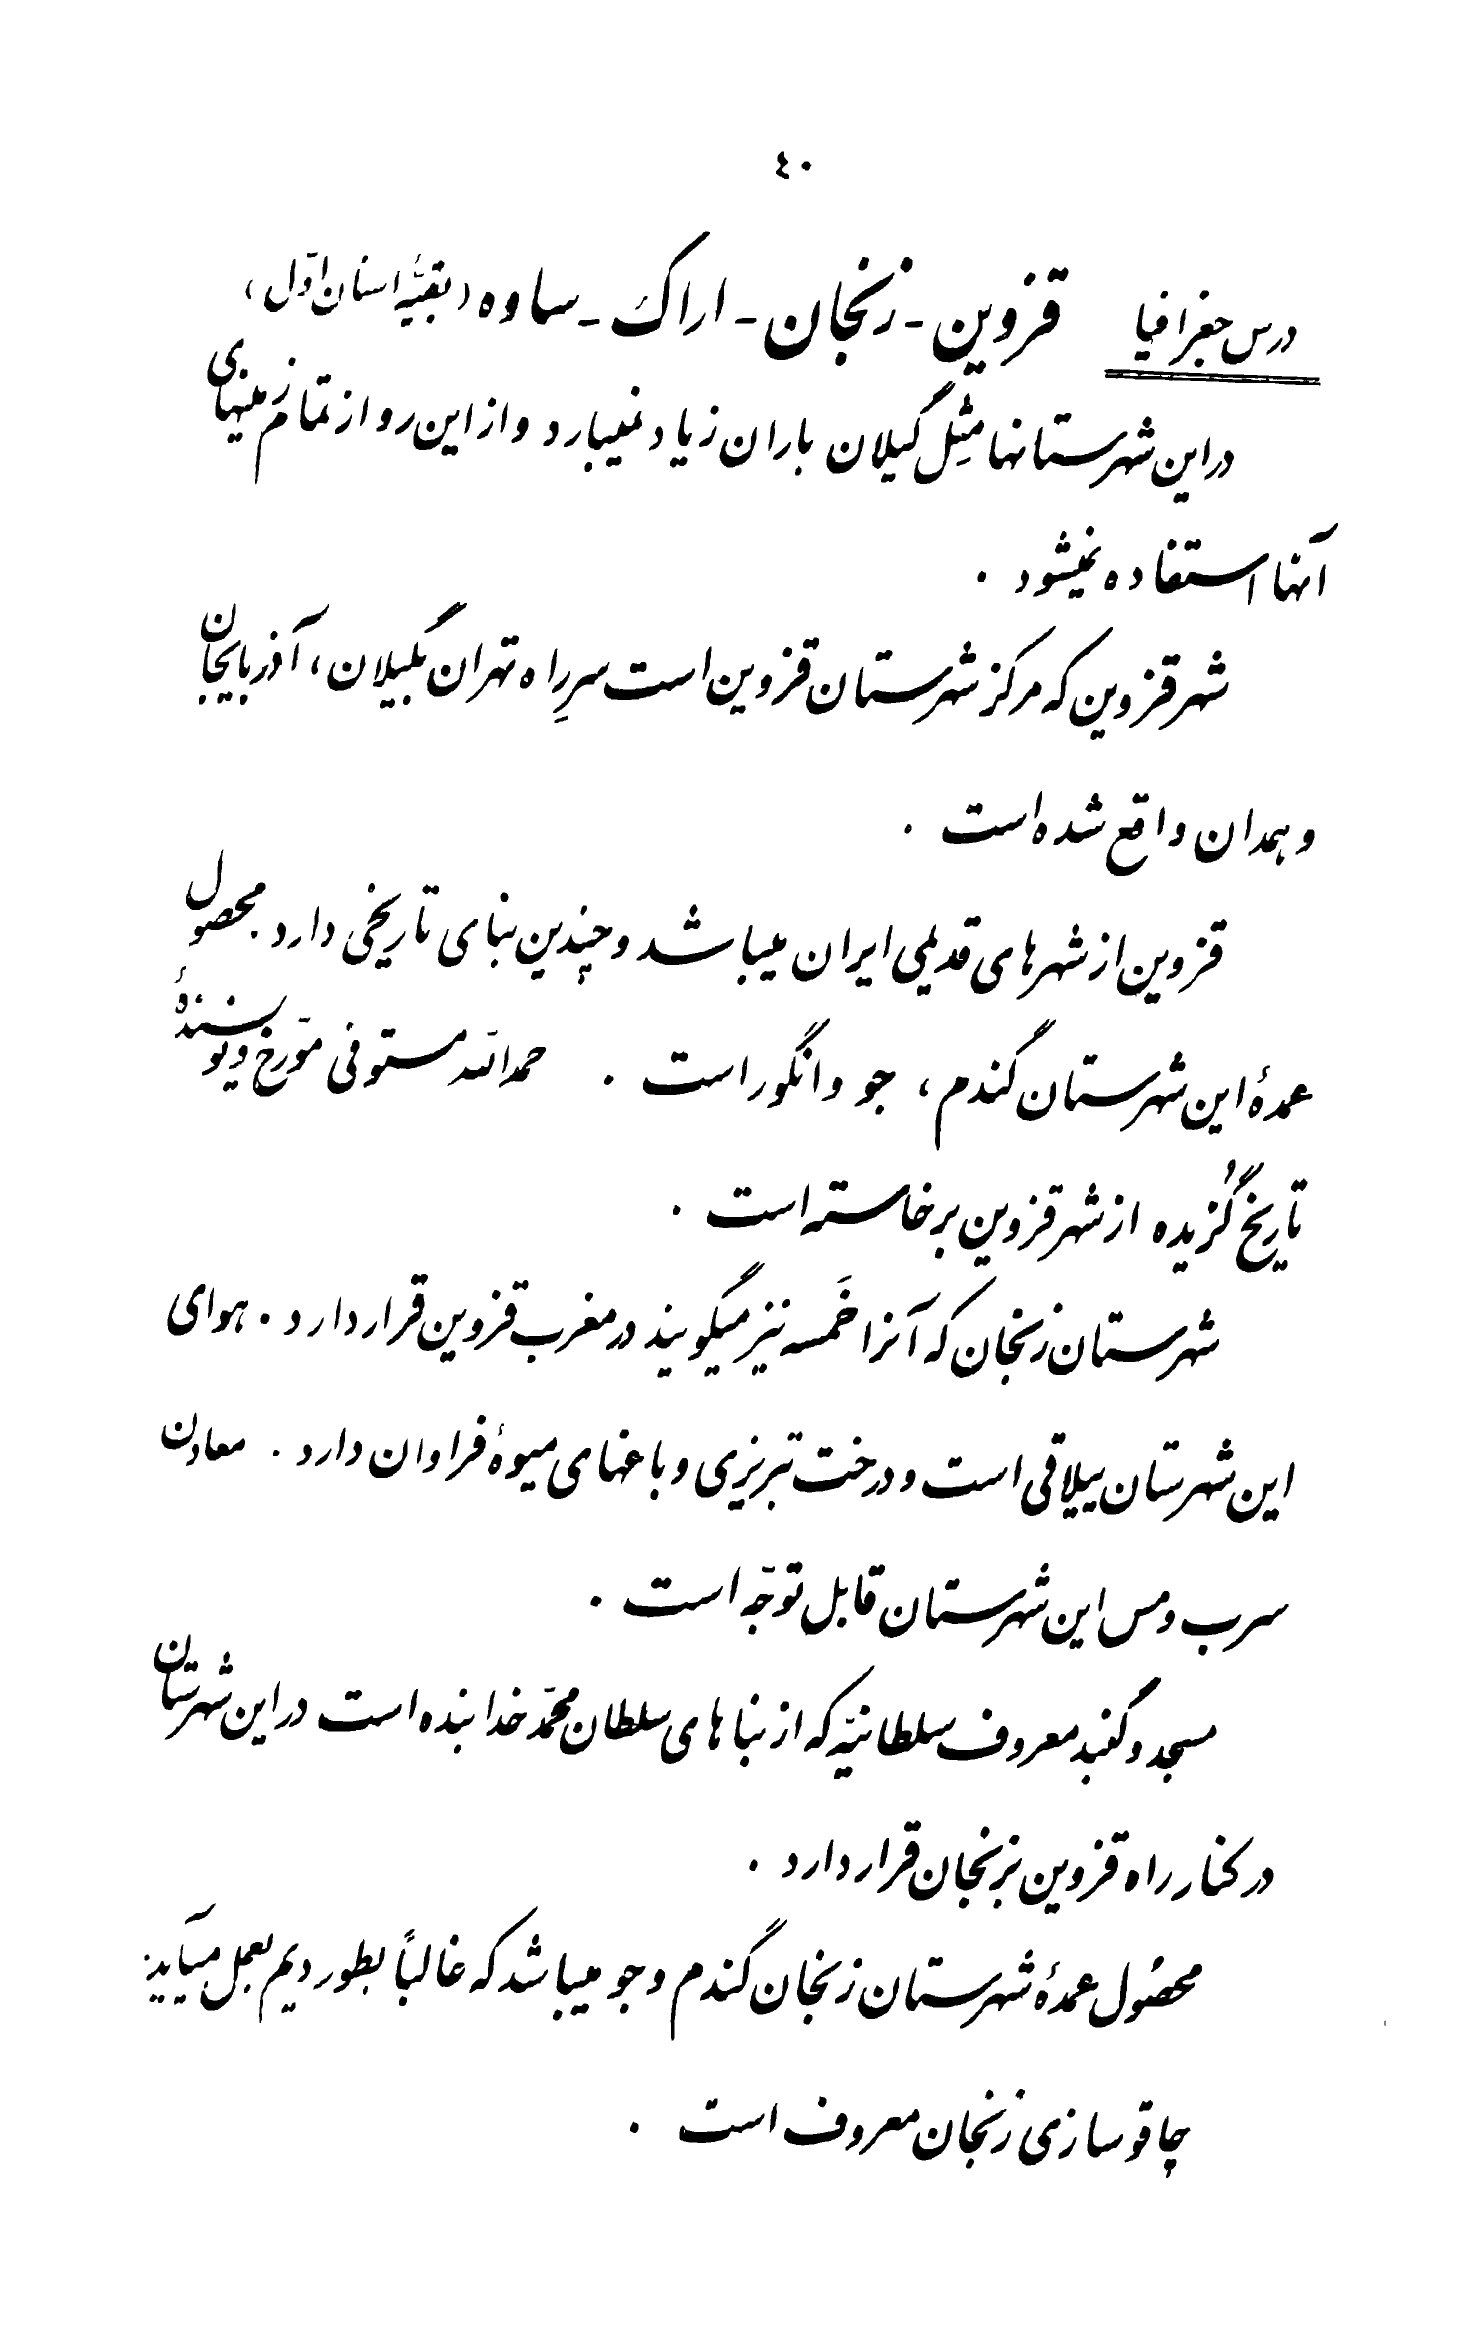 ٤٠
درس جغرافیا قزوین - زنجان - اراک - ساوه (بقیّهٔ استان اوّل)
در این شهرستانها مثِل گیلان باران زیاد نمیبارد و از این رو از تمام زمینهای
آنها استفاده نمیشود .
شهر قزوین که مرکز شهرستان قزوین است سرِراه تهران بگیلان، آذربایجان
و همدان واقع شده است .
قزوین از شهرهای قدیمی ایران میباشد و چندین بنای تاریخی دارد . محصول
عمدهٔ این شهرستان گندم، جو و انگور است . حمدالله مستوفی مورّخ و نویسندهٔ
تاریخ گُزیده از شهر قزوین برخاسته است .
شهرستان زنجان که آنرا خَمسه نیز میگویند در مغرب قزوین قرار دارد . هوای
این شهرستان ییلاقی است و درخت تبریزی و باغهای میوهٔ فراوان دارد . معادن
سرب و مس این شهرستان قابل توجّه است .
مسجد و گنبد معروف سلطانیّه که از بناهای سلطان محمّد خدابنده است در این شهرستان
در کنار راه قزوین بزنجان قرار دارد .
محصُول عمدهٔ شهرستان زنجان گندم و جو میباشد که غالباً بطور دیم بعمل میآید .
چاقوسازی زنجان معروف است .